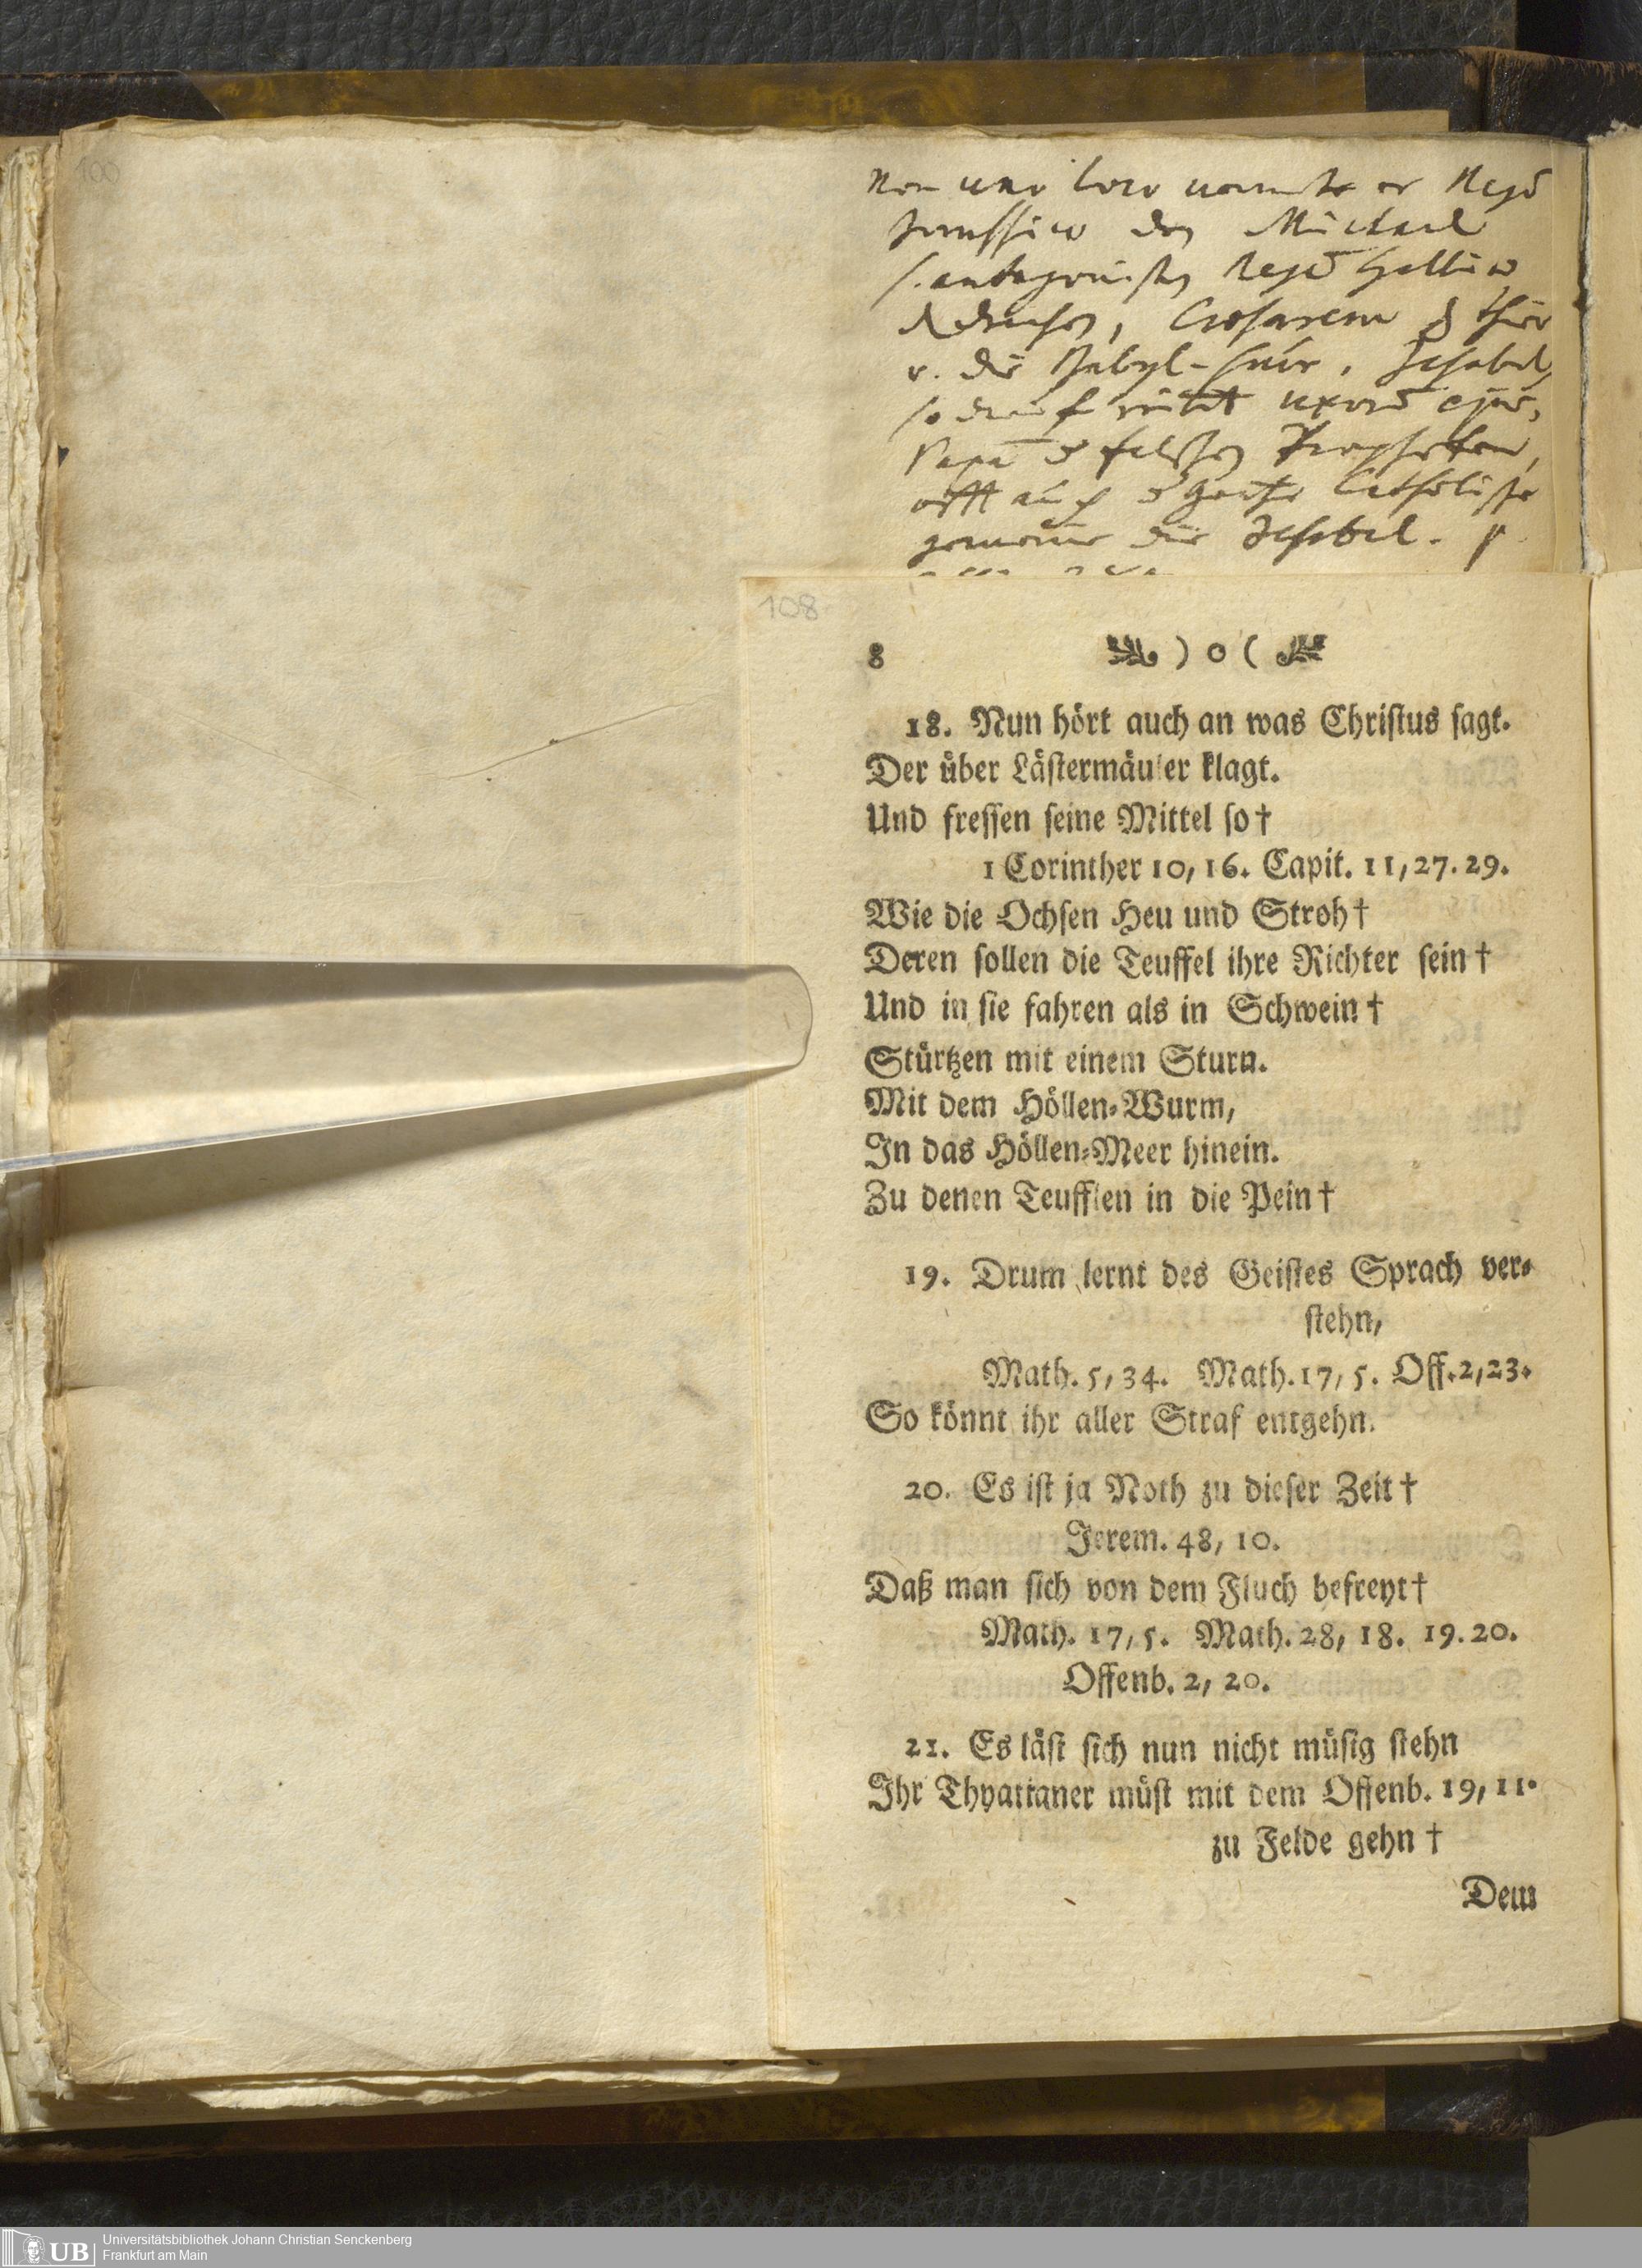 100
den Michael
die Babyl-
Papa falschen Propheten,
auch Catholische
die Jesabel.
108
8 ) o (
18. Nun hört auch an was Chriſtus ſagt.
Der über Läſtermäuler klagt.
Und freſſen ſeine Mittel ſo†
1 Corinther 10, 16. Capit. 11, 27. 29.
Wie die Ochſen Heu und Stroh†
Deren ſollen die Teuffel ihre Richter ſein†
Und in ſie fahren als in Schwein†
Stürtzen mit einem Sturn.
Mit dem Höllen-Wurm,
In das Höllen-Meer hinein.
Zu denen Teufflen in die Pein†
19. Drum lernt des Geiſtes Sprach ver-
ſtehn,
Math. 5, 34. Math. 17, 5. Off. 2, 23.
So könnt ihr aller Straf entgehn.
20. Es iſt ja Noth zu dieſer Zeit†
Jerem. 48, 10.
Daß man ſich von dem Fluch befreyt†
Math. 17, 5. Math. 28, 18. 19. 20.
Offenb. 2, 20.
21. Es läſt ſich nun nicht müſig ſtehn
Ihr Thyattaner müſt mit dem Offenb. 19, 11.
zu Felde gehn†
Dem
UB Universitätsbibliothek Johann Christian Senckenberg
Frankfurt am Main